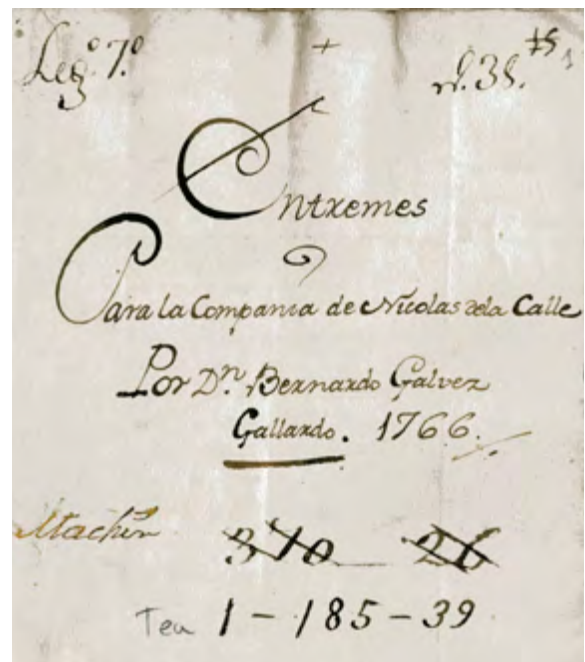 Leg.º 7.º + nº. 38.
Entremes
Para la Compania de Nicolas de la Calle
Por D.n Bernardo Galvez
Gallardo. 1766.
310 26
Tea 1-185-39